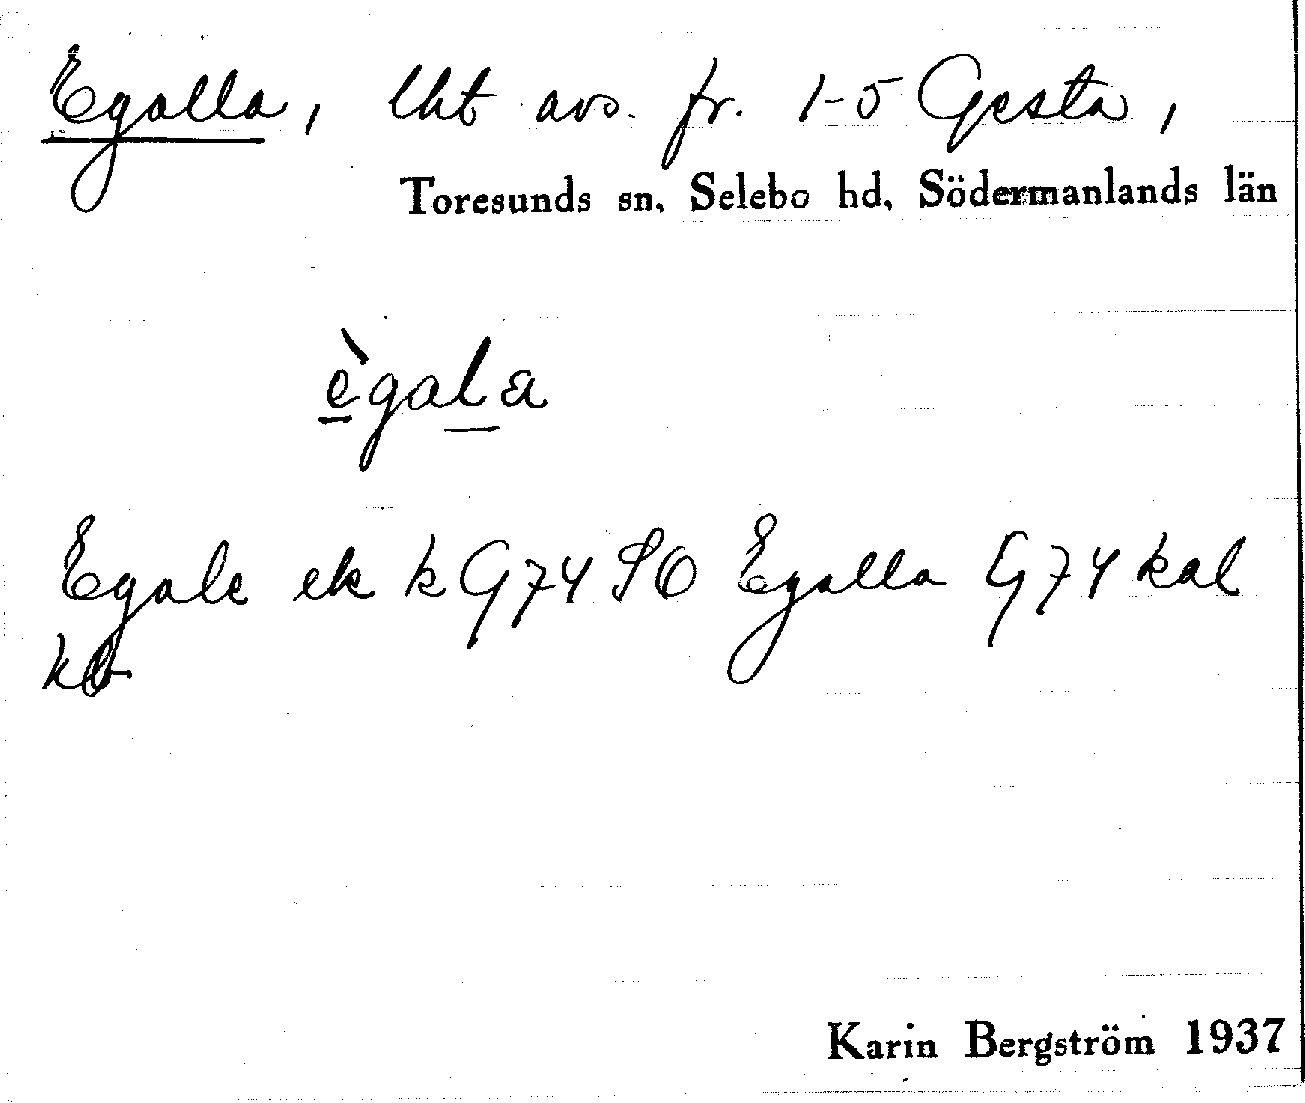 Egalla, lht avs. fr. 1-5 Gesta,
Toresunds sn, Selebo hd, Södermanlands län
ègala
Egale ek k G74 SO Egalla G74 kal